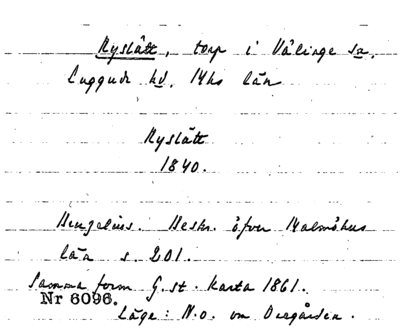 Nyslätt, torp i Välinge sn,
Luggude hd, Mhs län
Nyslätt
1840.
Beskr. öfver Malmöhus
län s. 201.
Samma form G. st. karta 1861.
Nr 6096.
Läge: N.o. om Djurgården.